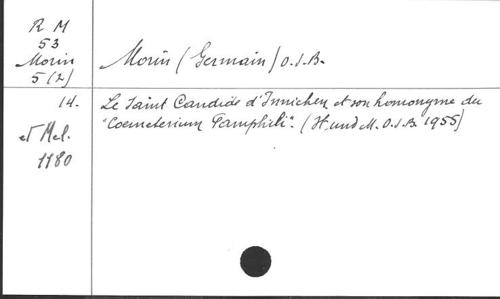 R M
53
Morin
5 (2)
Morin (Germain) O.S.B.
14.
Le Saint Candide d'Innichen et son homonyme du
"Coemeterium Pamphili". (H. und M. O.S.B. 1955)
et Mel.
1180